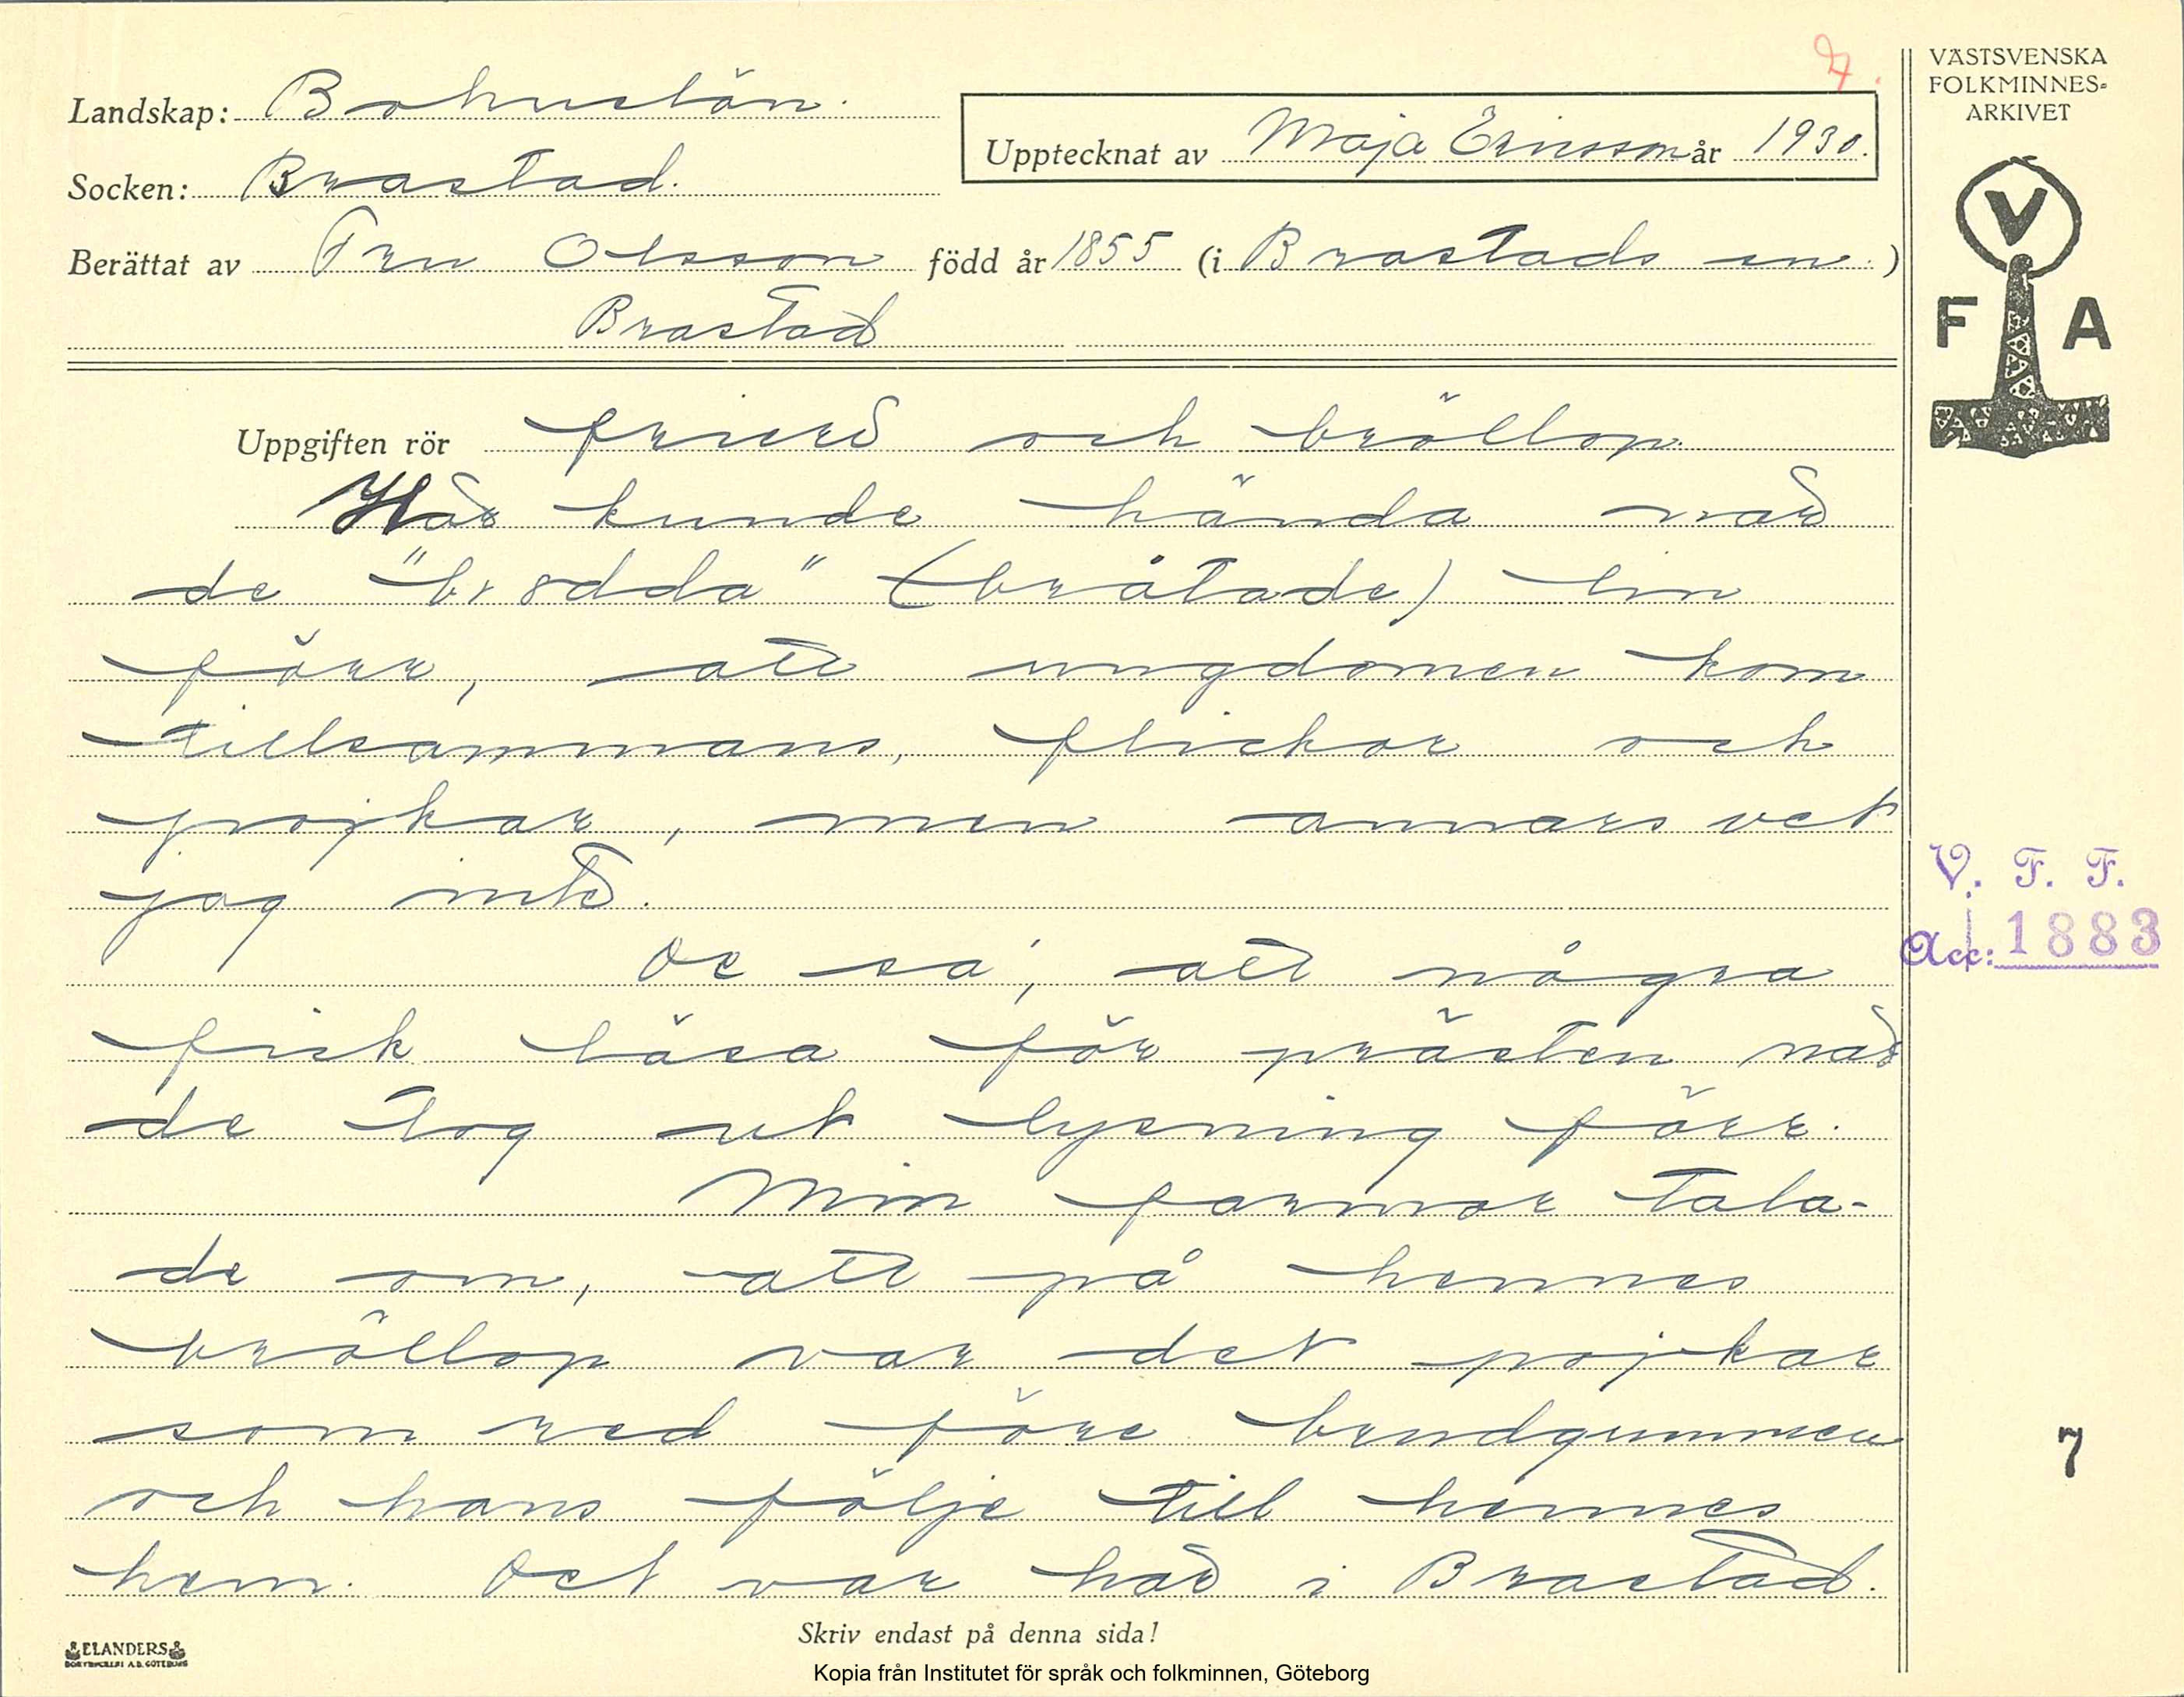 7.
Landskap: Bohuslän.
Upptecknat av Maja Ericsson år 1930.
Socken: Brastad.
Berättat av Fru Olsson född år 1855 (i Brastads sn.)
Brastad
VÄSTSVENSKA
FOLKMINNES-
ARKIVET
V
F A
Uppgiften rör frieri och bröllop.
Här kunde hända när
de "brödda" (bråtade) lin
förr, att ungdomen kom
tillsammans, flickor och
pojkar, men annars vet
jag inte.
De sa', att några
fick läsa för prästen när
de tog ut lysning förr.
Min farmor tala-
de om, att på hennes
bröllop var det pojkar
som red före brudgummen
och hans följe till hennes
hem. Det var här i Brastad.
V. F. F.
Acc: 1883
7
Skriv endast på denna sida!
ELANDERS
BOKTRYCKERI A.B. GÖTEBORG
Kopia från Institutet för språk och folkminnen, Göteborg